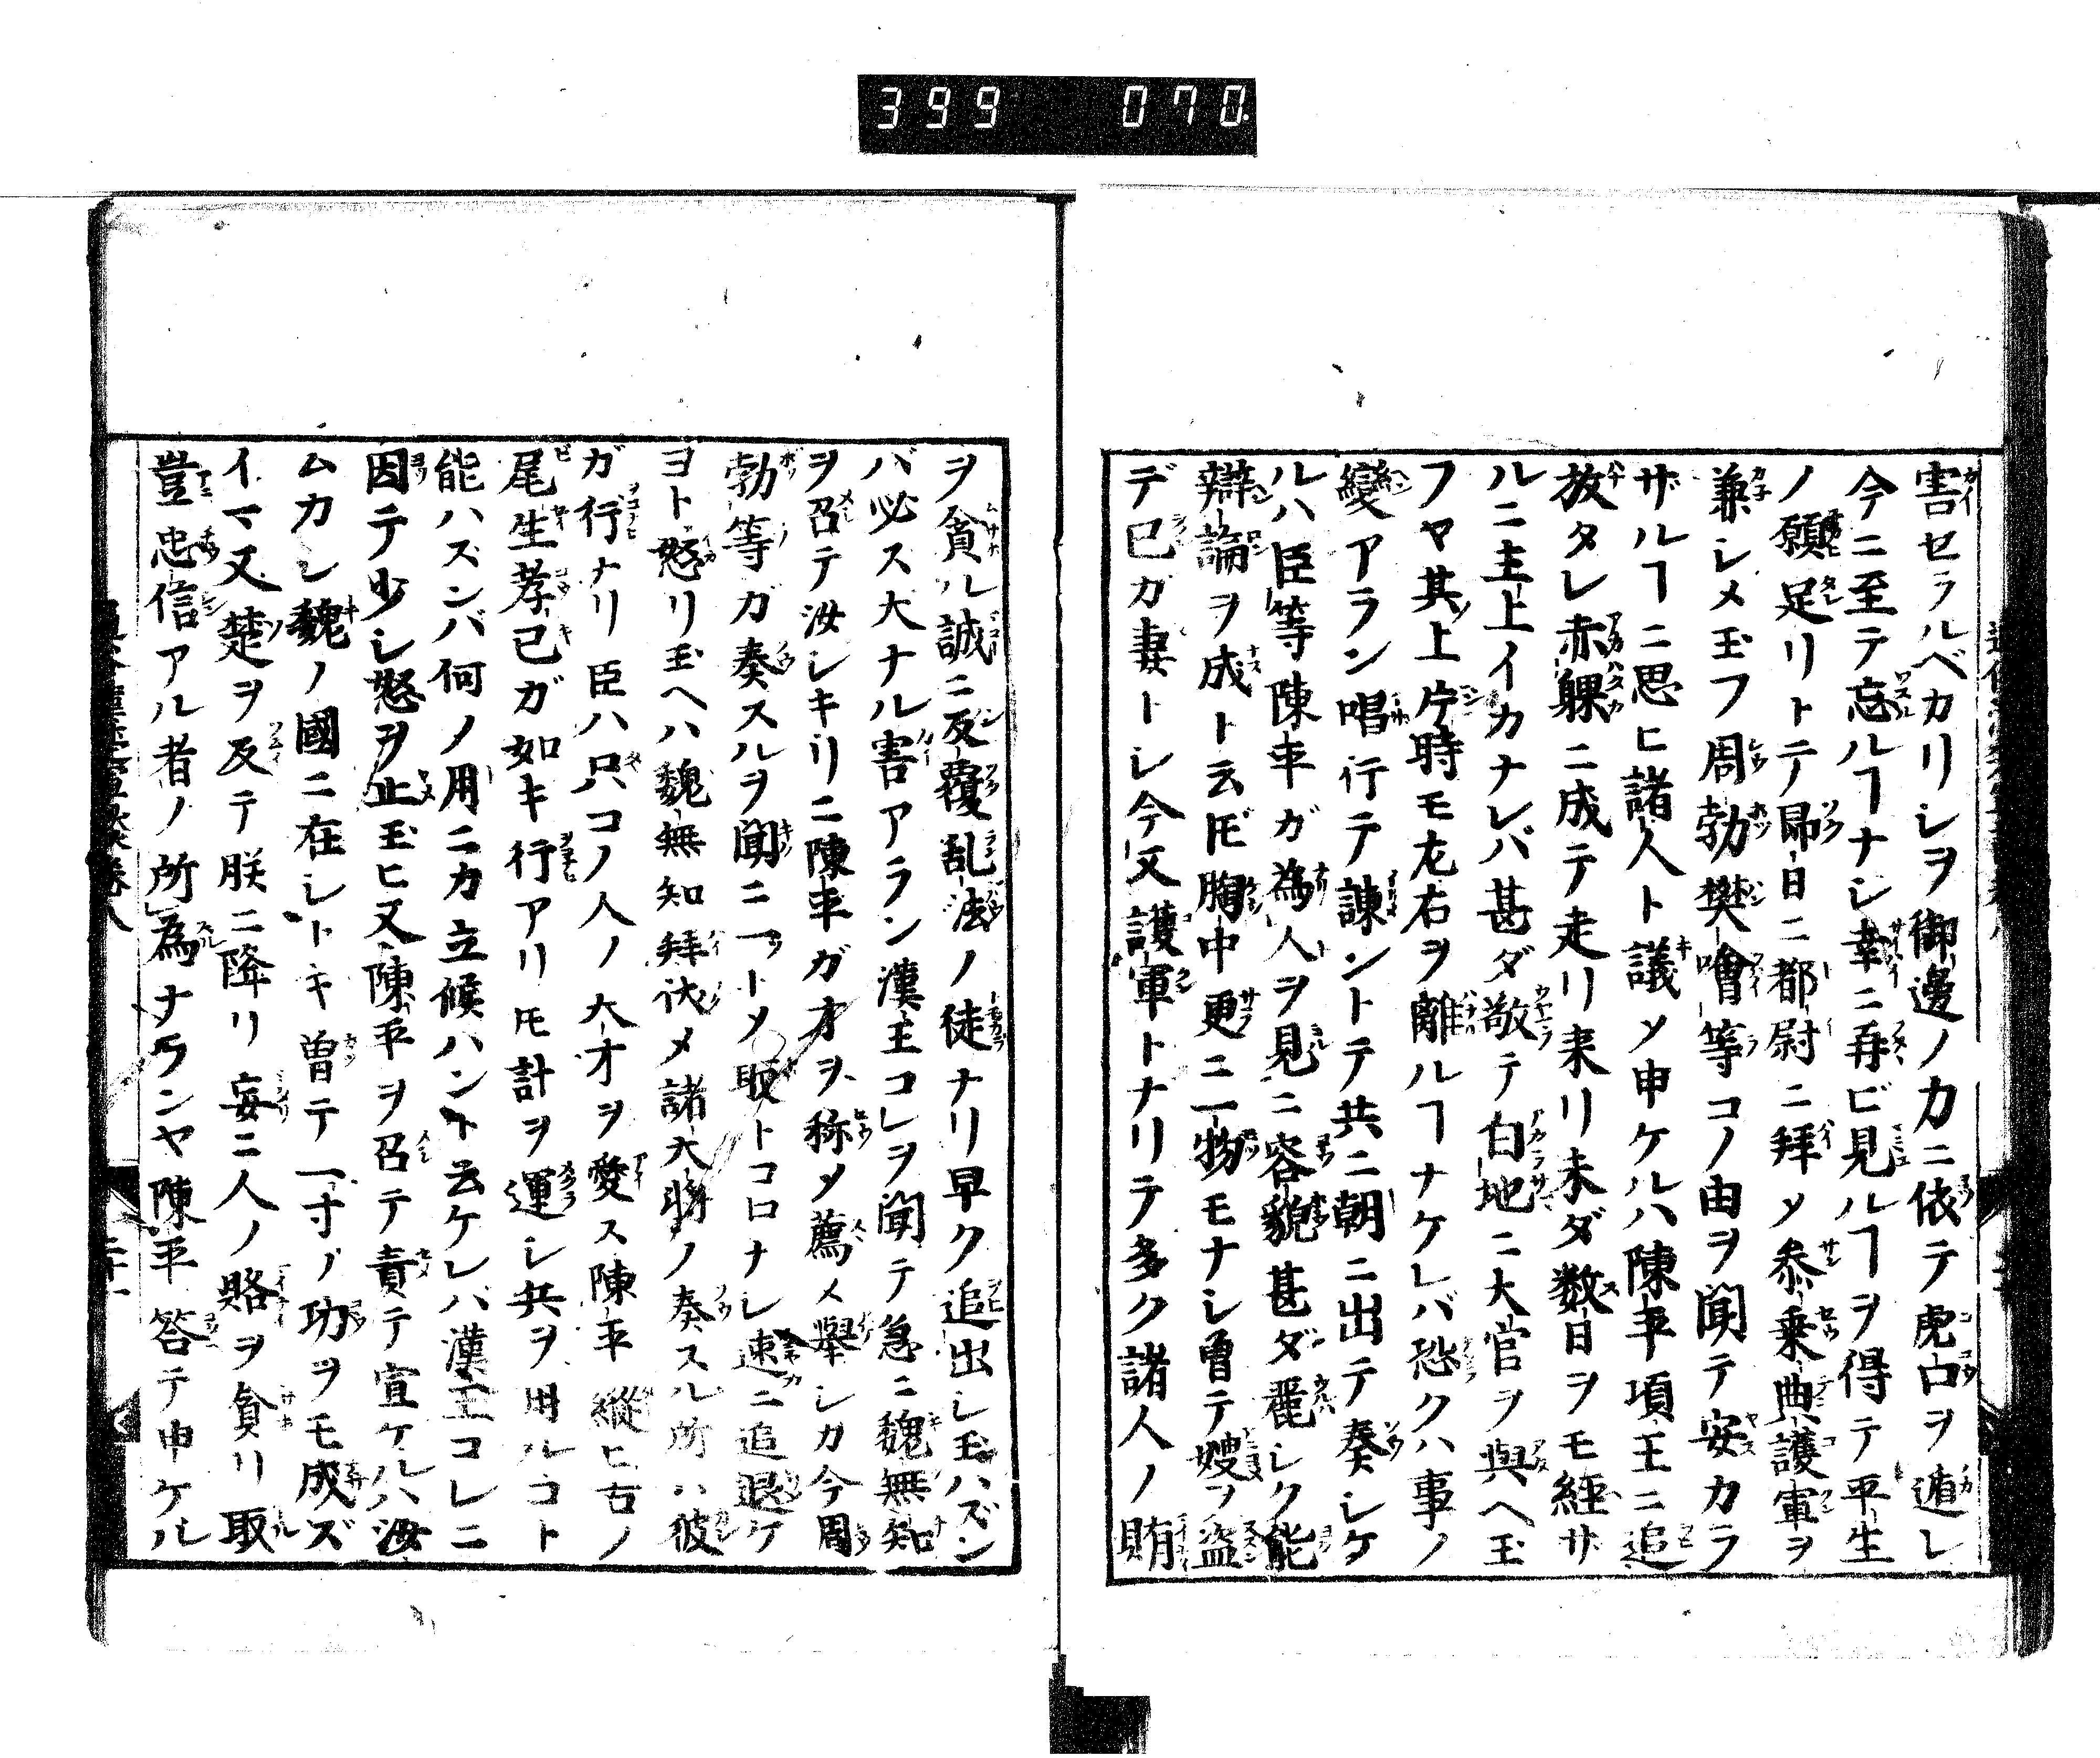 399 070
害セラルベカリシヲ御邊ノカニ依テ虎口ヲ遁レ
今ニ至テ忘ルヿナシ幸ニ再ビ見ルヿヲ得テ平生
ノ願足リトテ即日ニ都尉ニ拜メ參乗典護軍ヲ
兼シメ玉フ周勃樊噲等コノ由ヲ聞テ安カラ
ザルヿニ思ヒ諸人ト議メ申ケルハ陳平項王ニ追
放タレ赤躶ニ成テ走リ来リ未ダ数日ヲモ經サ
ルニ主上イカナレバ甚ダ敬テ白地ニ大官ヲ與ヘ玉
フヤ其上片時モ左右ヲ離ルヿナケレバ恐クハ事ノ
變アラン唱行テ諌ントテ共ニ朝ニ出テ奏シケ
ルハ臣等陳平ガ為人ヲ見ニ容貌甚ダ麗シク能
辯論ヲ成ト云𪜈胸中更ニ一物モナシ曽テ嫂ヲ盗
デ已カ妻トシ今又護軍トナリテ多ク諸人ノ賄
ヲ貪ル誠ニ反覆乱法ノ徒ナリ早ク追出シ玉ハズン
バ必ス大ナル害アラン漢王コレヲ聞テ急ニ魏無知
ヲ召テ汝シキリニ陳平ガ才ヲ称メ薦メ擧シカ今周
勃等ガ奏スルヲ聞ニ一トメ取トコロナシ速ニ追退ケ
ヨト怒リ玉ヘハ魏無知拜伏メ諸大將ノ奏スル所ハ彼
ガ行ナリ臣ハ只コノ人ノ大才ヲ愛ス陳平縱ヒ古ノ
尾生孝已ガ如キ行アリ𪜈計ヲ運シ兵ヲ用ルコト
能ハズンバ何ノ用ニカ立候ハント云ケレバ漢王コレニ
因テ少シ怒ヲ止玉ヒ又陳平ヲ召テ責テ宣ケルハ汝
ムカシ魏ノ國ニ在シトキ曽テ一寸ノ功ヲモ成ズ
イマ又楚ヲ反テ朕ニ降リ妄ニ人ノ賂ヲ貪リ取
豈忠信アル者ノ所為ナランヤ陳平答テ申ケル